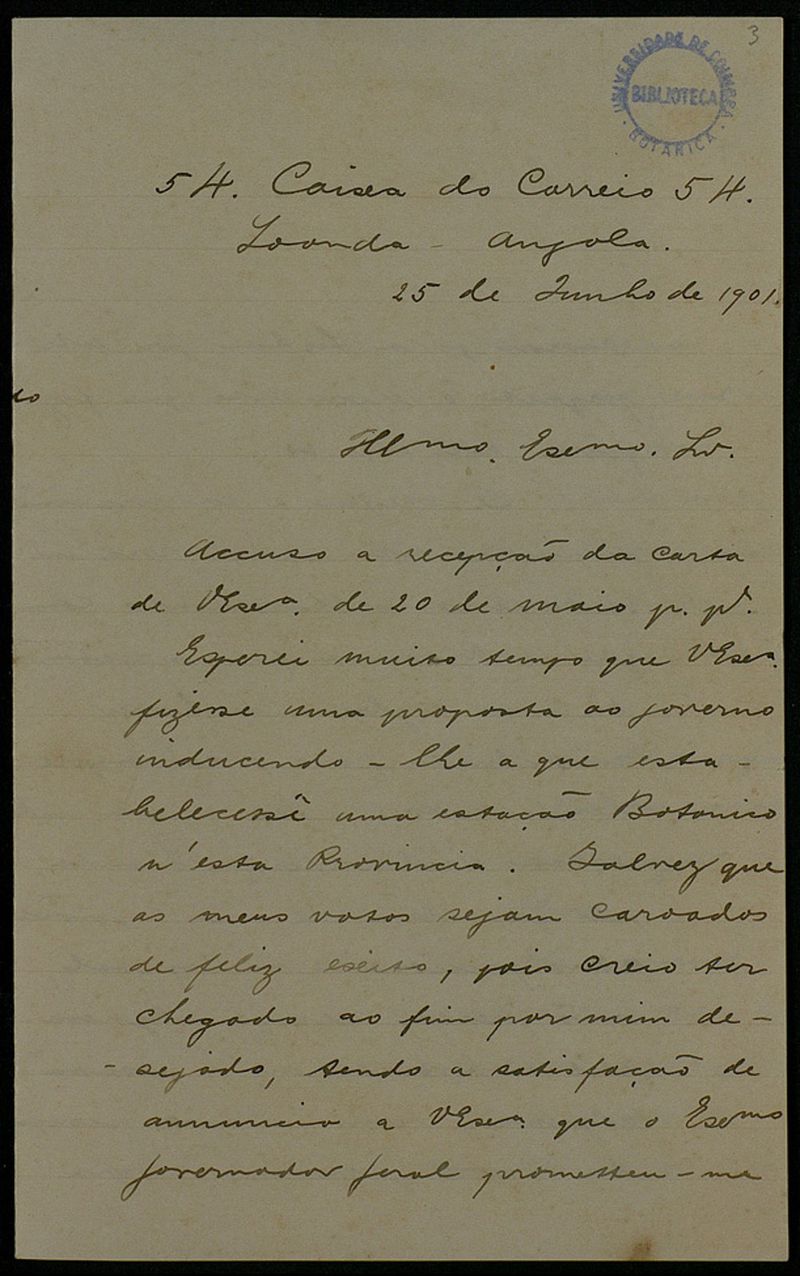 3
UNIVERSIDADE DE COIMBRA
BIBLIOTECA
BOTANICA
54. Caixa do Correio 54.
Loanda - Angola.
25 de Junho de 1901.
Illmo. Exmo. Snr.
Accuso a recepção da carta
de VExª. de 20 de maio p. pº.
Esperei muito tempo que VExª.
fizesse uma proposta ao governo
inducendo - lhe a que esta -
belecesse uma estação Botanico
n'esta Provincia. Talvez que
os meus votos sejam caroados
de feliz exito, pois creio ter
chegado ao fim por mim de -
- sejado, tendo a satisfação de
annuncio a VExª. que o Exmo
governador geral prometteu - me